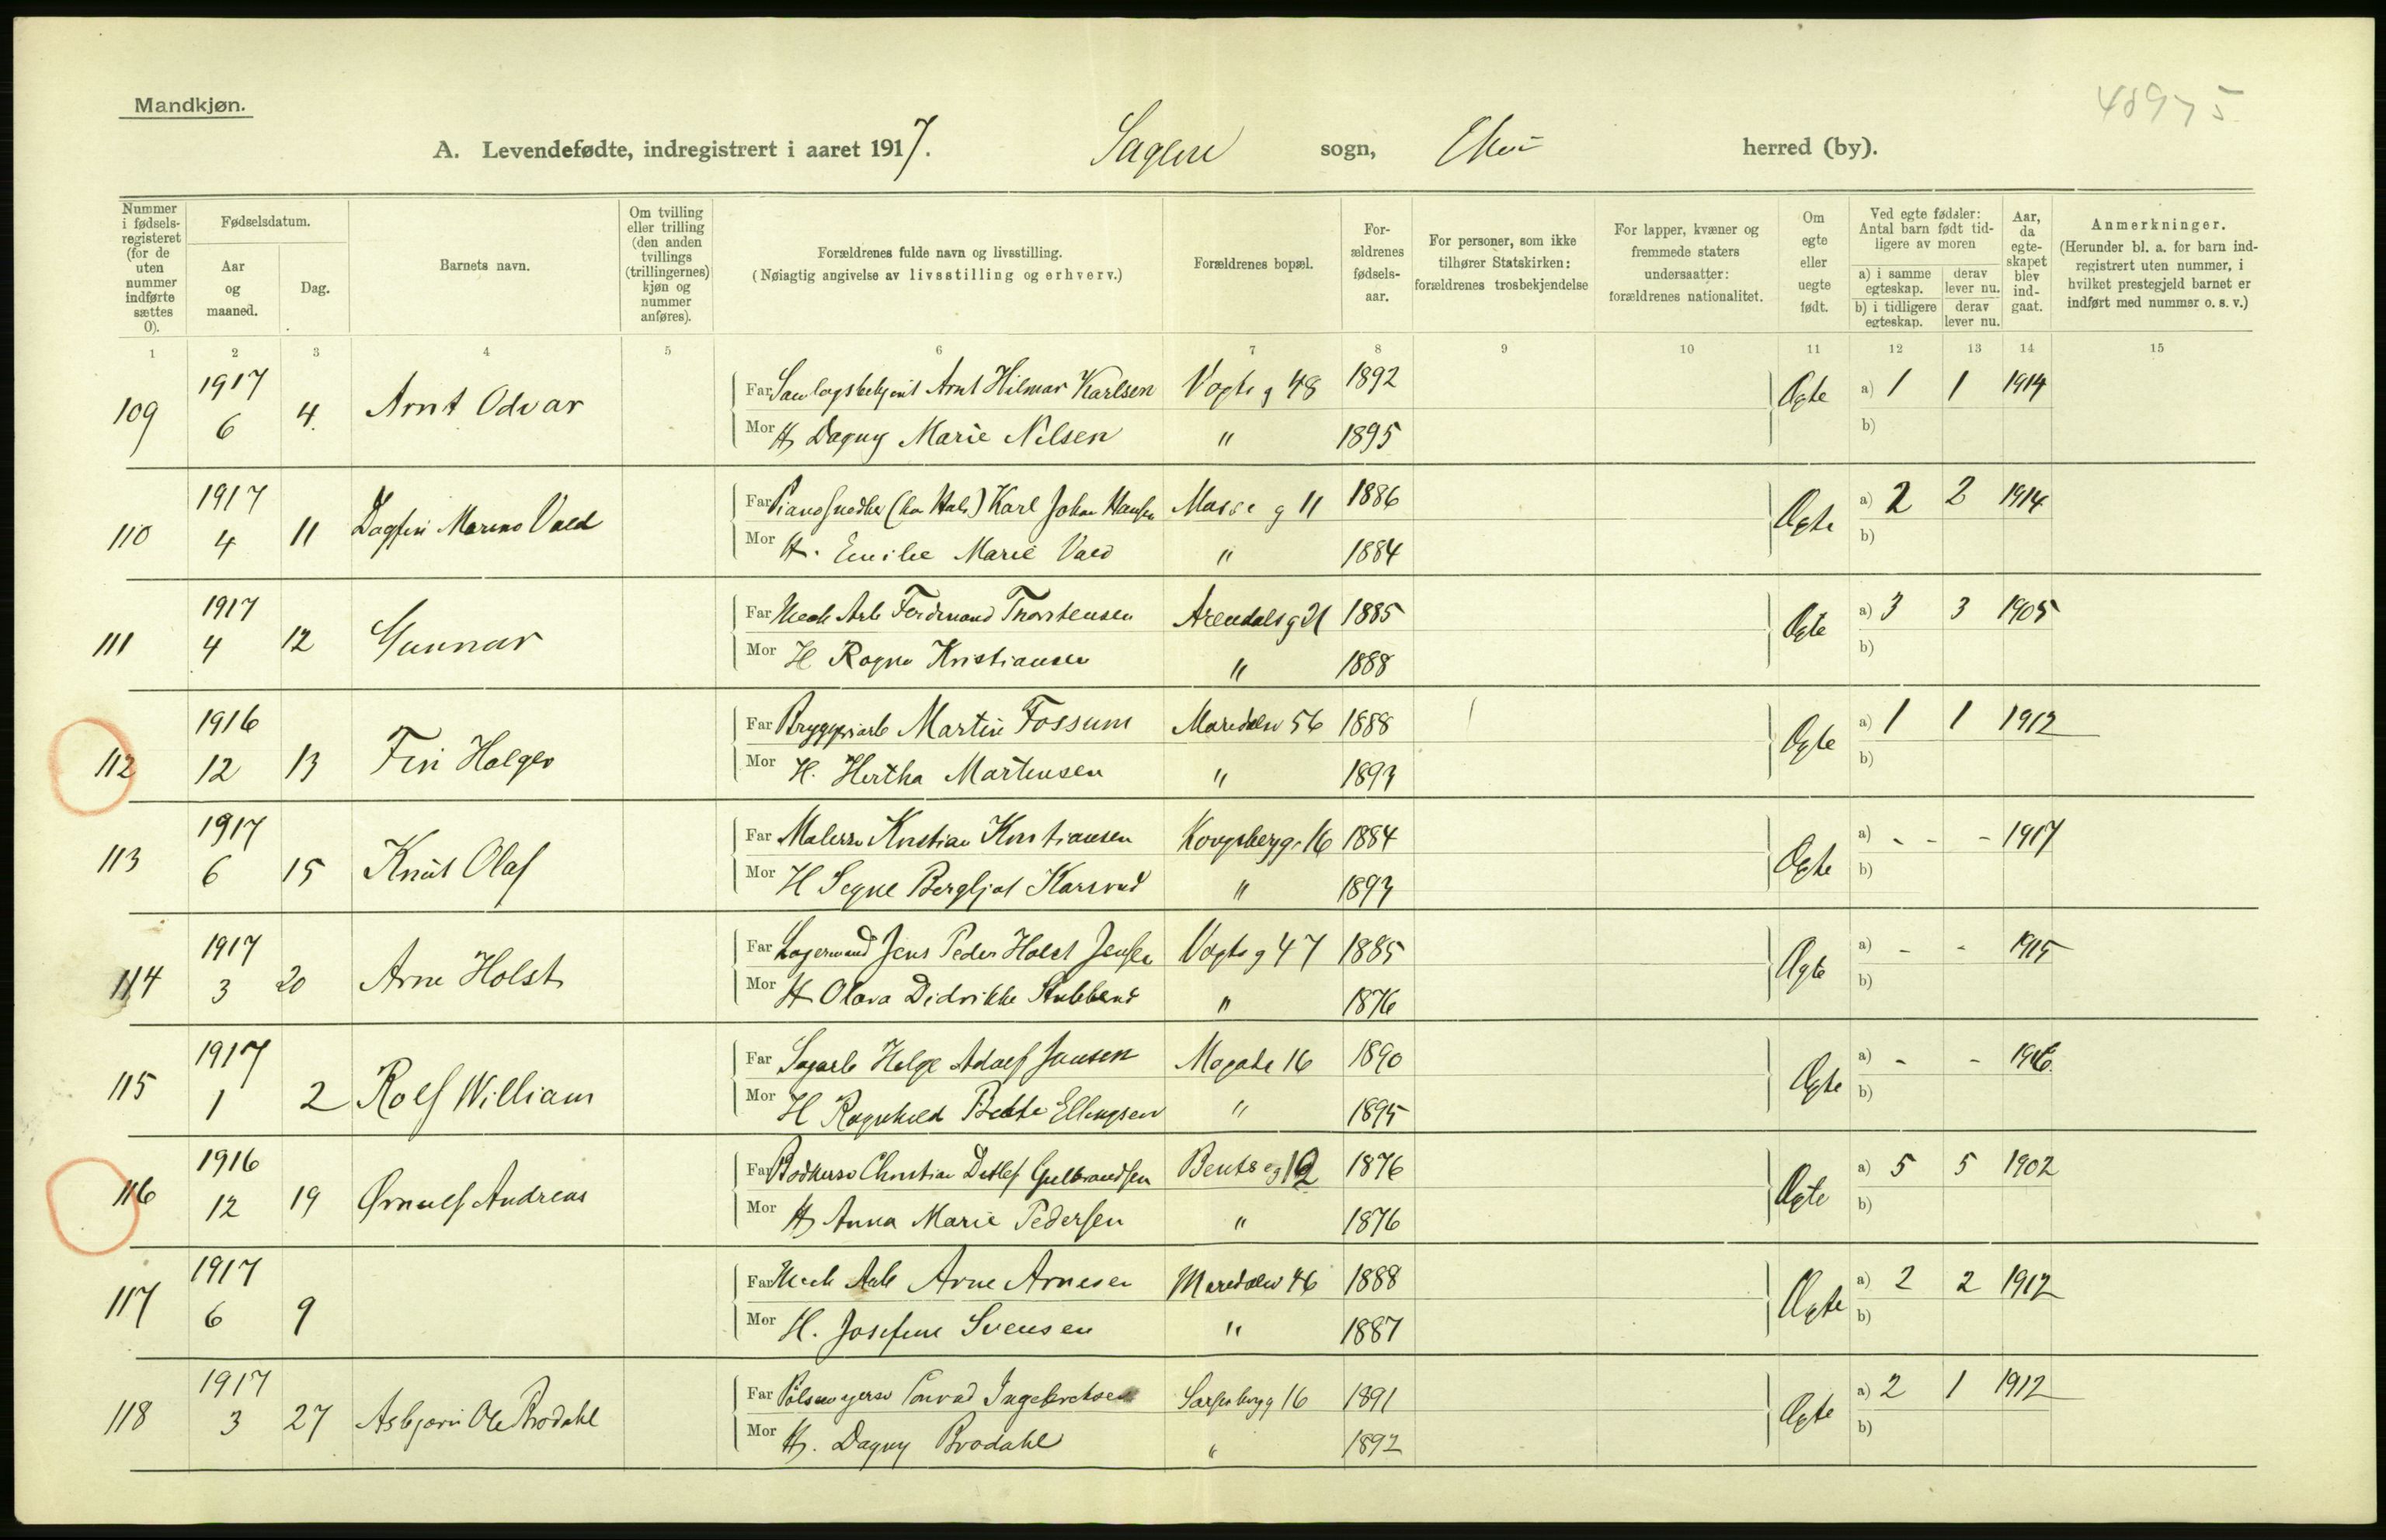 Mandkjøn.
A. Levendefødte, indregistrert i aaret 1917. Sagene sogn, herred (by).
Nummer i fødselsregisteret (for de uten nummer indførte sættes 0).
Fødselsdatum.
Aar og maaned.
Dag.
Barnets navn.
Om tvilling eller trilling (den anden tvillings (trillingernes) kjøn og nummer anføres).
Forældrenes fulde navn og livsstilling.
(Nøiagtig angivelse av livsstilling og erhverv.)
Forældrenes bopæl.
Forældrenes fødselsaar.
For personer, som ikke tilhører Statskirken: forældrenes trosbekjendelse
For lapper, kvæner og fremmede staters undersaatter: forældrenes nationalitet.
Om egte eller uegte født.
Ved egte fødsler: Antal barn født tidligere av moren
a) i samme egteskap.
derav lever nu.
b) i tidligere egteskap.
derav lever nu.
Aar, da egteskapet blev indgaat.
Anmerkninger.
(Herunder bl. a. for barn indregistrert uten nummer, i hvilket prestegjeld barnet er indført med nummer o. s. v.)
1 2 3 4 5 6 7 8 9 10 11 12 13 14 15
109 1917 6 4. Arnt Odvar Far Arnt Hilmar Karlsen Vogts g 48 1892 Ægte a) 1 1 1914
Mor H Dagny Marie Nilsen " 1895 b)
110 1917 4 11 Dagfin Mareno Vald Far Pianosnedker (hos Hals) Karl Johan Hansen Masse g 11 1886 Ægte a) 2 2 1914
Mor H. Emilie Marie Vald " 1884 b)
111 1917 4 12 Gunnar Far Mek Arb Ferdinand Thorstensen Arendals g 21 1885 Ægte a) 3 3 1905
Mor H Ragna Kristiansen " 1888 b)
112 1916 12 13 Fin Holger Far Bryggeriarb Martin Fossum Maridalsv 56 1888 Ægte a) 1 1 1912
Mor H. Hertha Martensen " 1893 b)
113 1917 6 15 Knut Olaf Far Malersv Kristian Kristiansen Kongsbergg. 16 1884 Ægte a) - - - 1917
Mor H Signe Bergljot Karsrud " 1893 b)
114 1917 3 20 Arne Holst Far Lagermand Jens Peder Holst Jensen Vogts g 47 1885 Ægte a) - - 1915
Mor H Olava Didrikke Stubberud " 1876 b)
115 1917 1 2 Rolf William Far Sagarb Helge Adolf Jansen Mogata 16 1890 Ægte a) - - 1916.
Mor H Ragnhild Bertha Ellingsen " 1895 b)
116 1916 12 19 Ørnulf Andreas Far Bødkersv Christian Detlef Gulbrandsen Bentse g 12 1876 Ægte a) 5 5 1902
Mor H Anna Marie Pedersen " 1876 b)
117 1917 6 9 Far Mek Arb Arne Arnesen Maridalsv 46 1888 Ægte a) 2 2 1912
Mor H. Josefine Svensen " 1887 b)
118 1917 3 27 Asbjørn Ole Brodahl Far Pølsemagersv Conrad Ingebretsen Sarpsborgg 16 1891 Ægte a) 2 1 1912
Mor H. Dagny Brodahl " 1892 b)